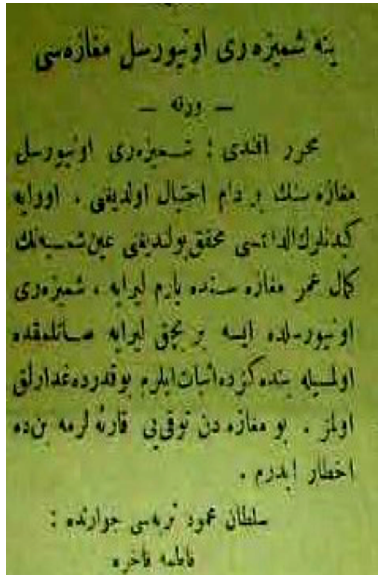 ینه شمیزه‌ری اونیورسل مغازه‌سی
— ورته —
محرر افندی : شمیزه‌ری اونیورسل
مغازه‌سنك بر دام احتیال اولدیغی ، اورایه
کیدنلرك الدانمسی محقق بولندیغی عین شمسیه‌نك
کمال عمر مغازه‌سنده یارم لیرایه ، شمیزه‌ری
اونیورسلده ایسه بر بچق لیرایه صاتلمقده
اولمسیله بنده‌کز ده اثبات ایلرم بو قدر ده غدارلق
اولمز . بو مغازه‌دن توقی‌یی قارئه‌لرمه بن ده
اخطار ایدرم .
سلطان محمود تربه‌سی جوارنده :
فاطمه فاخره